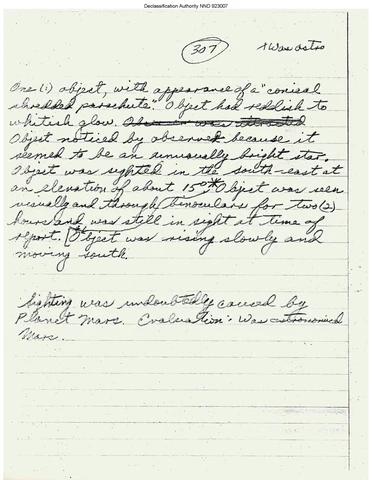 Declassification Authority NND 923007
307
1 Was astro
One (1) object, with appearance of a "conical
shredded parachute". Object had reddish to
whitish glow. Observer was attracted
Object noticed by observer because it
seemed to be an unusually bright star.
Object was sighted in the south-east at
an elevation of about 15°. Object was seen
visually and through binoculars for two (2)
hours and was still in sight at time of
report. Object was rising slowly and
moving south.
Sighting was undoubtedly caused by
Planet Mars. Evaluation: Was astronomical
Mars.